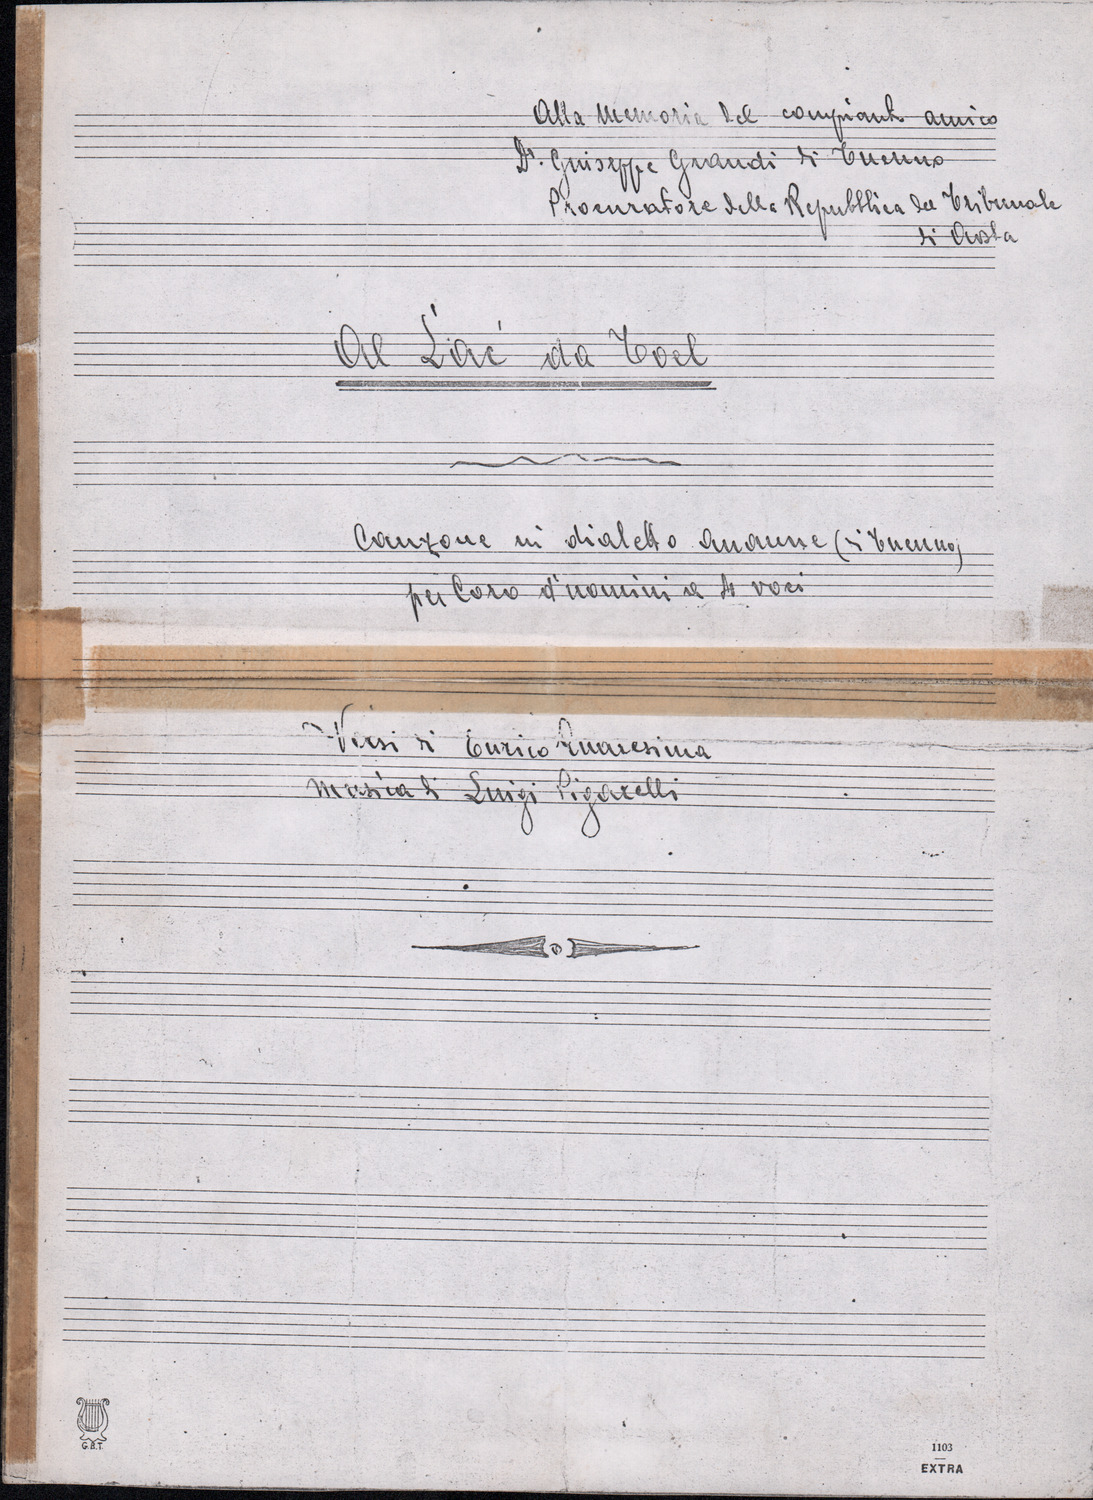 Alla Memoria del compianto amico
Dr. Giuseppe Grandi di Tuenno
Procuratore della Repubblica del Tribunale
di Aosta
Al Lać da Toel
Canzone in dialetto anaunse (di Tuenno)
per Coro d'uomini a 4 voci
Versi di Enrico Quaresima
Musica di Luigi Pigarelli
G.B.T.
1103
EXTRA